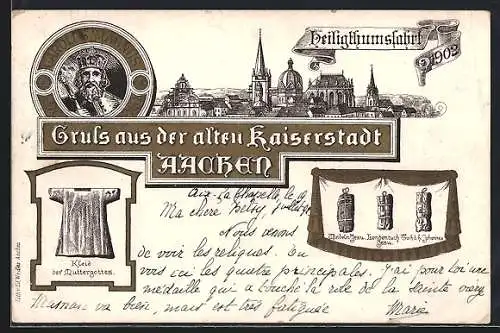 CAROLUS MAGNUS
Heiligthumsfahrt
1902
Gruss aus der alten Kaiserstadt
AACHEN
Aix-la-Chapelle, le
Ma chère Betsy,
Nous venons
de voir les reliques. En
voici les quatre principales. J'ai pour toi une
médaille qui a touché la robe de la sainte vierge
Maman va bien, mais est très fatiguée
Marie
Kleid
der Muttergottes.
Windeln Jesu. Lendentuch Jesu. Tuch d. h. Johannes